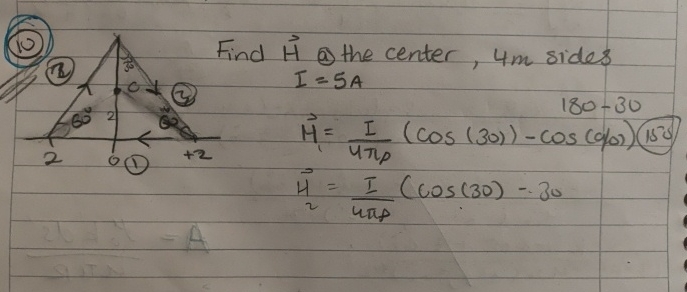 10
Find H⃗ @ the center, 4m sides
I = 5A
180-30
H⃗₁ = I/4πρ (cos(30)) - cos(90)) 150
H⃗₂ = I/4πρ (cos(30) - 30
3
2
60°
60°
2
2 0 1 +2